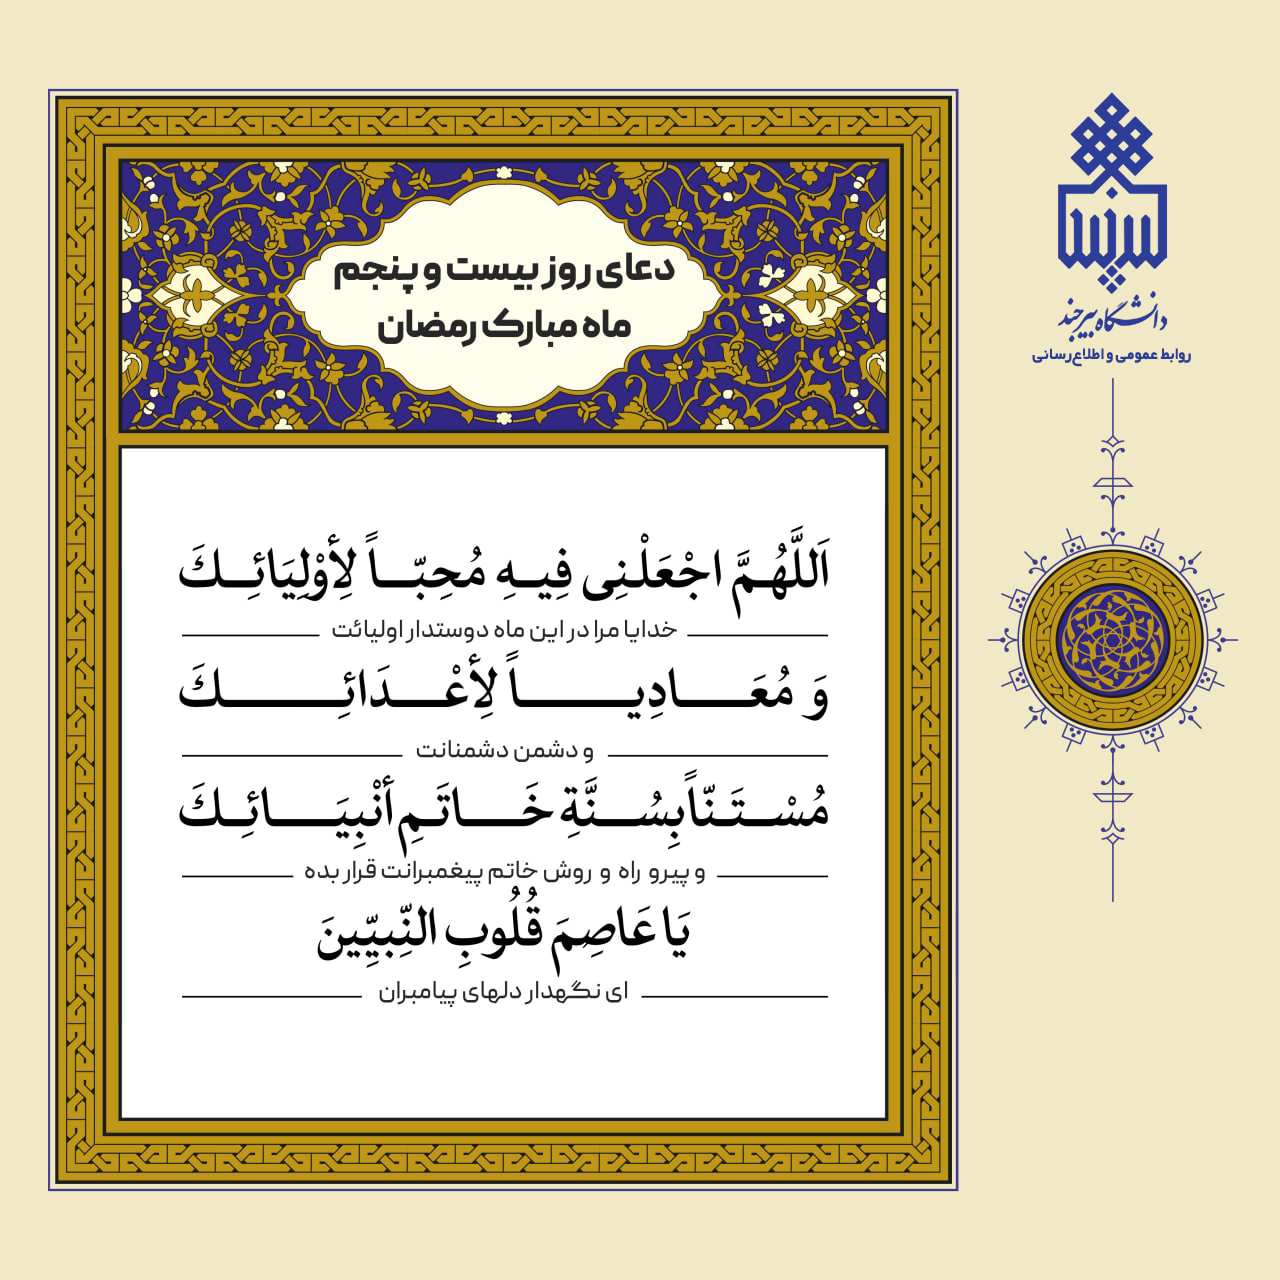 دعای روز بیست و پنجم
ماه مبارک رمضان
اَللَّهُمَّ اجْعَلْنِی فِیهِ مُحِبّاً لِأَوْلِیَائِکَ
خدایا مرا در این ماه دوستدار اولیائت
وَ مُعَادِیاً لِأَعْدَائِکَ
و دشمن دشمنانت
مُسْتَنّاً بِسُنَّةِ خَاتَمِ أَنْبِیَائِکَ
و پیرو راه و روش خاتم پیغمبرانت قرار بده
یَا عَاصِمَ قُلُوبِ النَّبِیِّینَ
ای نگهدار دلهای پیامبران
دانشگاه بیرجند
روابط عمومی و اطلاع‌رسانی